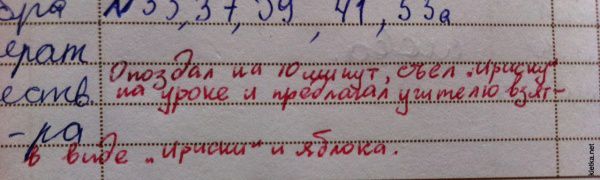 ора №35, 37, 39, 41, 53а
ерат
Опоздал на 10 минут, съел „Ириску"
еств. на уроке и предлагал учителю взят-
-ра
в виде „Ириски" и яблока.
kletka.net